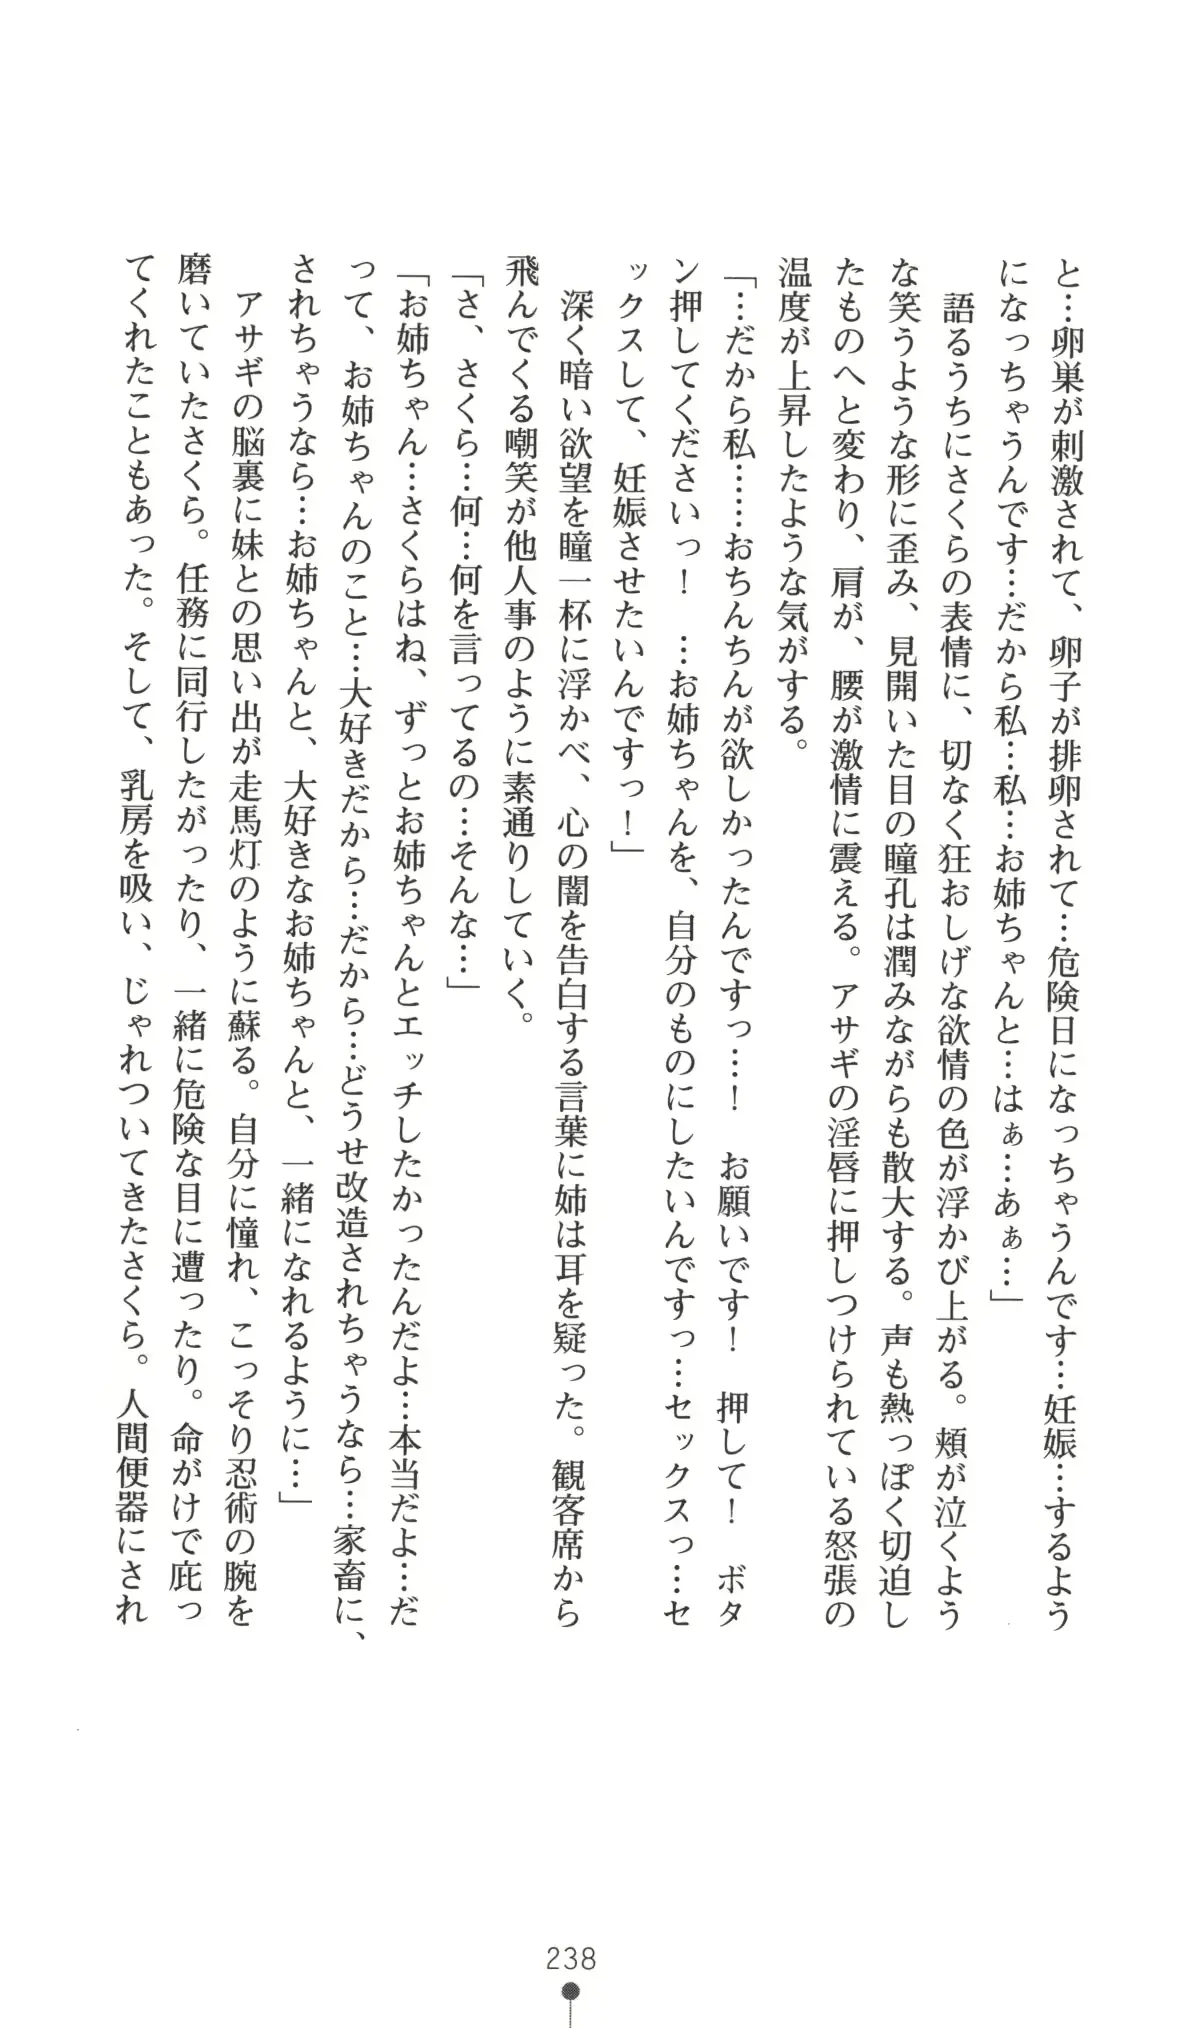 と…卵巣が刺激されて、卵子が排卵されて…危険日になっちゃうんです…妊娠…するよう
になっちゃうんです…だから私…私…お姉ちゃんと…はぁ…あぁ…」
　語るうちにさくらの表情に、切なく狂おしげな欲情の色が浮かび上がる。頬が泣くよう
な笑うような形に歪み、見開いた目の瞳孔は潤みながらも散大する。声も熱っぽく切迫し
たものへと変わり、肩が、腰が激情に震える。アサギの淫唇に押しつけられている怒張の
温度が上昇したような気がする。
「…だから私……おちんちんが欲しかったんですっ…！　お願いです！　押して！　ボタ
ン押してくださいっ！　…お姉ちゃんを、自分のものにしたいんですっ…セックスっ…セ
ックスして、妊娠させたいんですっ！」
　深く暗い欲望を瞳一杯に浮かべ、心の闇を告白する言葉に姉は耳を疑った。観客席から
飛んでくる嘲笑が他人事のように素通りしていく。
「さ、さくら…何…何を言ってるの…そんな…」
「お姉ちゃん…さくらはね、ずっとお姉ちゃんとエッチしたかったんだよ…本当だよ…だ
って、お姉ちゃんのこと…大好きだから…だから…どうせ改造されちゃうなら…家畜に、
されちゃうなら…お姉ちゃんと、大好きなお姉ちゃんと、一緒になれるように…」
　アサギの脳裏に妹との思い出が走馬灯のように蘇る。自分に憧れ、こっそり忍術の腕を
磨いていたさくら。任務に同行したがったり、一緒に危険な目に遭ったり。命がけで庇っ
てくれたこともあった。そして、乳房を吸い、じゃれついてきたさくら。人間便器にされ
238